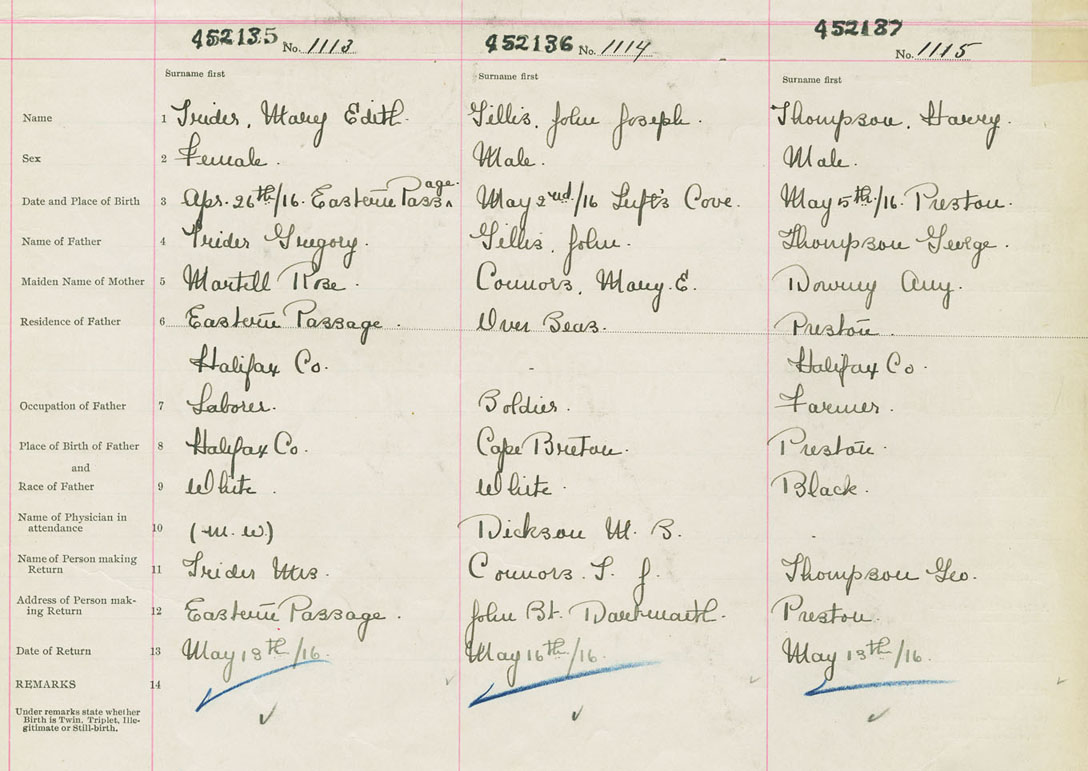 452135 No. 1113 452136 No. 1114 452137 No. 1115
Surname first Surname first Surname first
Name 1 Trider, Mary Edith. Gillis, John Joseph. Thompson, Harry.
Sex 2 Female. Male. Male.
Date and Place of Birth 3 Apr. 26th/16. Eastern Passage. May 2nd/16 Tuft's Cove. May 5th/16. Preston.
Name of Father 4 Trider Gregory. Gillis, John. Thompson George.
Maiden Name of Mother 5 Martell Rose. Connors, Mary. E. Downey Amy.
Residence of Father 6 Eastern Passage. Over Seas. Preston.
Halifax Co. - Halifax Co.
Occupation of Father 7 Laborer. Soldier. Farmer.
Place of Birth of Father 8 Halifax Co. Cape Breton. Preston.
and
Race of Father 9 White. White. Black.
Name of Physician in
attendance 10 (M. W.) Dickson M. S.
Name of Person making
Return 11 Trider Mrs Connors. T. J. Thompson Geo.
Address of Person mak-
ing Return 12 Eastern Passage. John St. Dartmouth. Preston.
Date of Return 13 May 13th/16. May 16th/16. May 13th/16.
REMARKS 14
Under remarks state whether
Birth is Twin, Triplet, Ille-
gitimate or Still-birth.